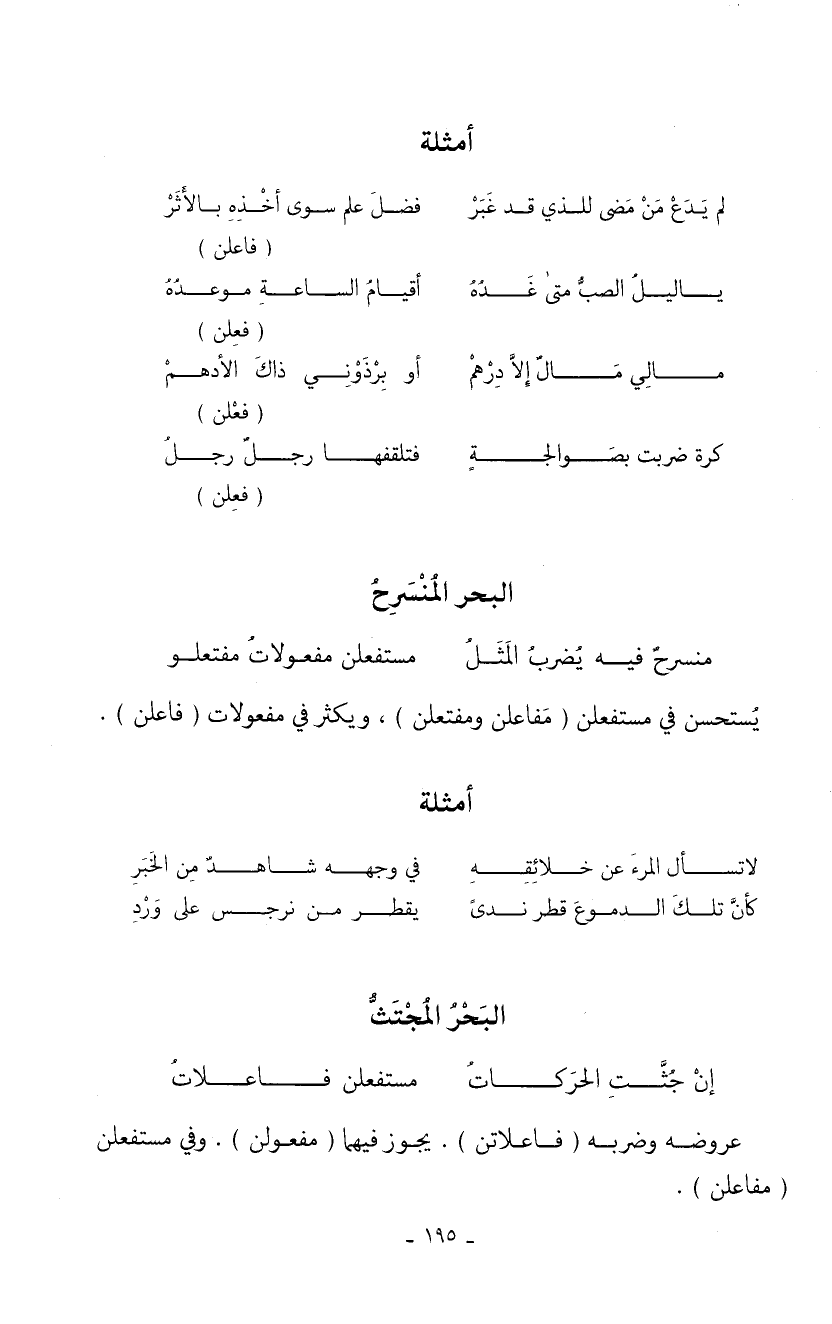 أمثلة
لم يَدَعْ مَنْ مَضى للذي قد غَبَرْ فضلَ علم سوى أخْذِهِ بالأثَرْ
( فاعلن )
ياليلُ الصبُّ متىٰ غَدُهُ أقيامُ الساعةِ موعدُهُ
( فعِلن )
مالِي مَالٌ إلاَّ دِرْهمْ أو بِرْذَوْنِي ذاكَ الأدهمْ
( فعْلن )
كرة ضربت بصَوالجةٍ فتلقفها رجلٌ رجلُ
( فعِلن )
البحر المُنْسَرِحُ
منسرحٌ فيه يُضربُ المَثَلُ مستفعلن مفعولاتُ مفتعلو
يُستحسن في مستفعلن ( مَفاعلن ومفتعلن ) ، ويكثر في مفعولات ( فاعلن ) .
أمثلة
لاتسأل المرءَ عن خلائِقِهِ في وجهه شاهدٌ مِن الخَبَرِ
كأنَّ تلكَ الدموعَ قطر ندىً يقطر من نرجس على وَرْدِ
البَحْرُ المُجْتَثُّ
إنْ جُثَّتِ الحَرَكاتُ مستفعلن فاعلاتُ
عروضه وضربه ( فاعلاتن ) . يجوز فيها ( مفعولن ) . وفي مستفعلن
( مفاعلن ) .
ـ ١٩٥ ـ